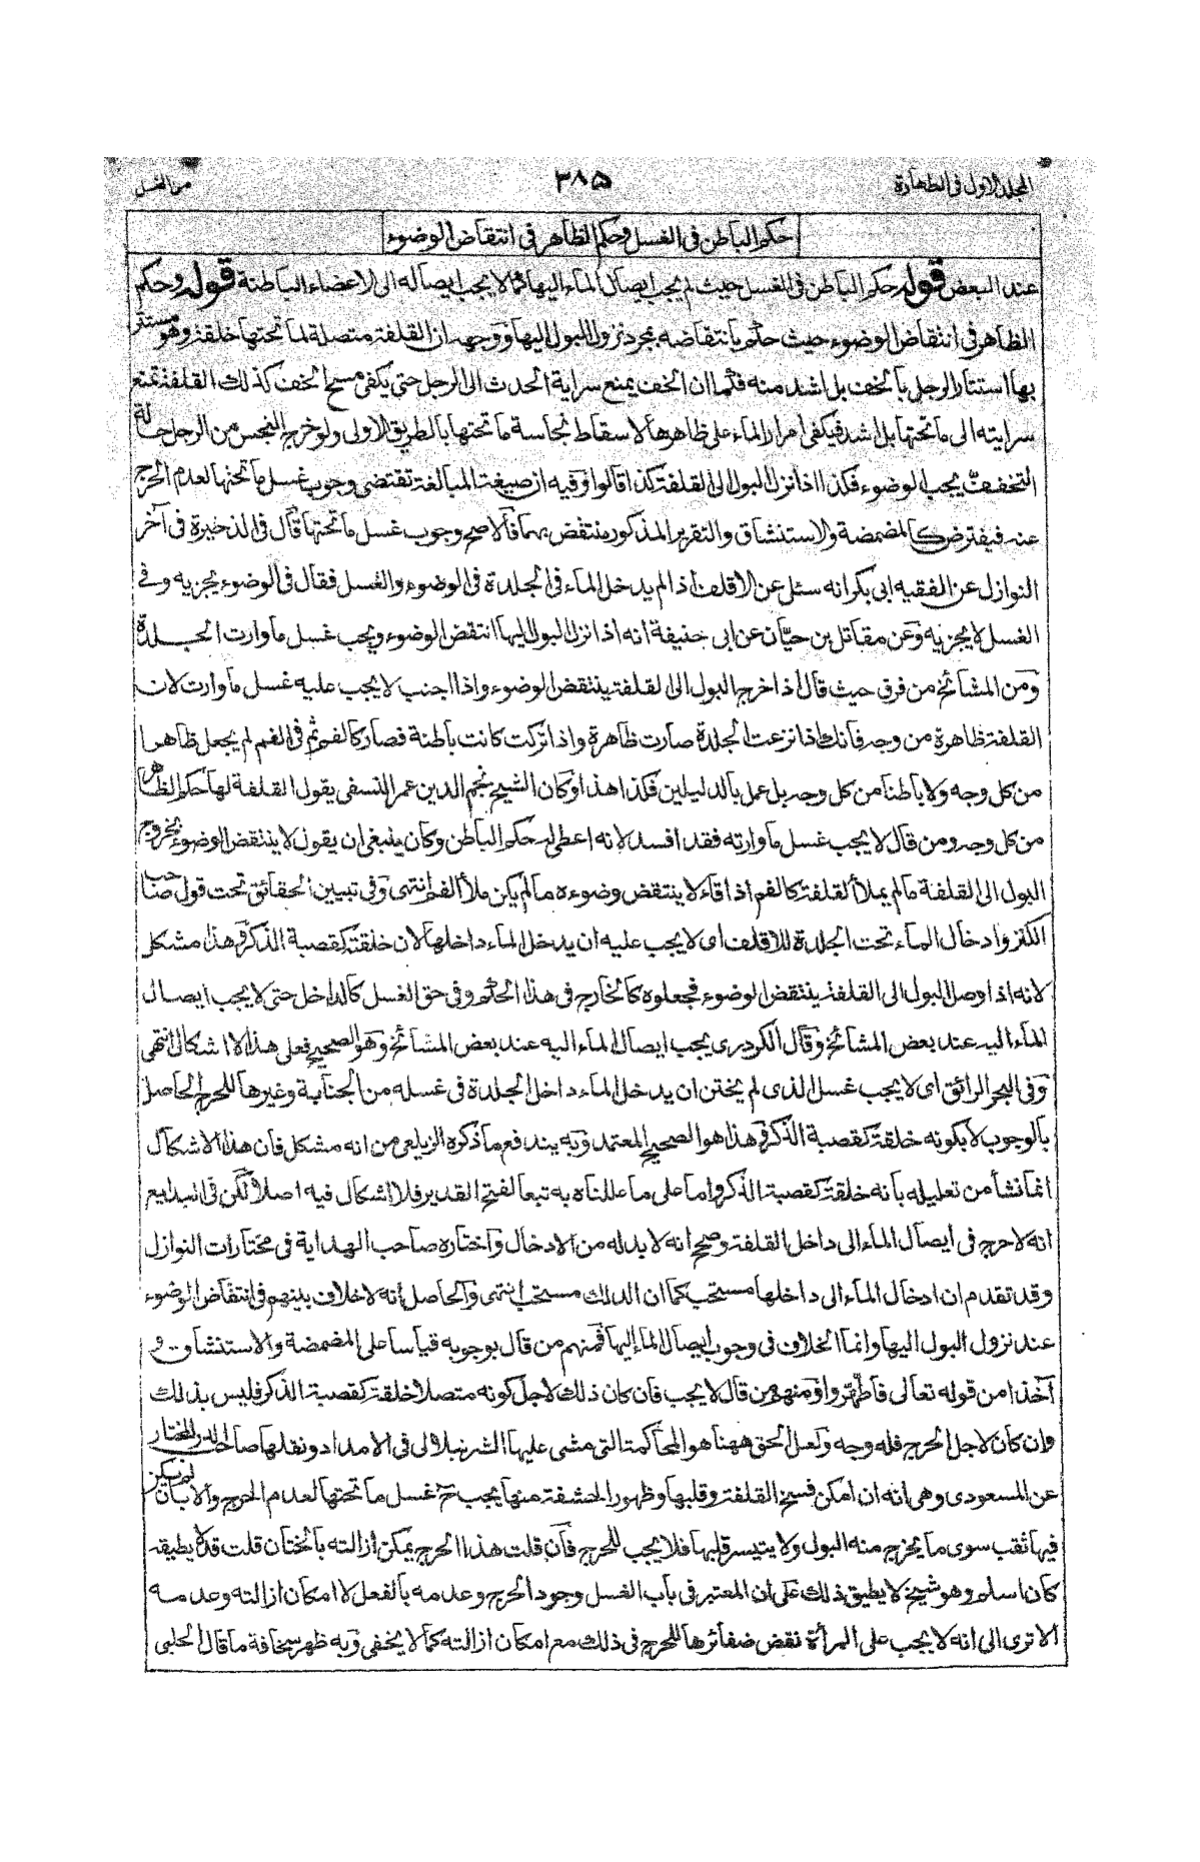 المجلد الاول فى الطهارة
٣٨٥
من الغسل
حكم الباطن فى الغسل وحكم الظاهر فى انتقاض الوضوء
عند البعض قوله حكم الباطن فى الغسل حيث لم يجب ايصال الماء اليها كما لا يجب ايصاله الى الاعضاء الباطنة قوله وحكم
الظاهر فى انتقاض الوضوء حيث حكم بانتقاضه بمجرد نزول البول اليها ووجهه ان القلفة متصلة لما تحتها خلقة وهو مستتر
بها استتار الرجل بالخف بل اشد منه فكما ان الخف يمنع سراية الحدث الى الرجل حتى يكفى مسح الخف كذلك القلفة تمنع
سرايته الى ما تحتها بل اشد فيكفى امرار الماء على ظاهرها لاسقاط نجاسة ما تحتها بالطريق الاولى ولو خرج النجس من الرجل حالة
التخفف يجب الوضوء فكذا اذا نزل البول الى القلفة كذا قالوا وفيه ان صيغة المبالغة تقتضى وجوب غسل ما تحتها لعدم الحرج
عنه فيفترض كالمضمضة والاستنشاق والتقرير المذكور منتقض بهما فالاصح وجوب غسل ما تحتها قال فى الذخيرة فى آخر
النوازل عن الفقيه ابى بكر انه سئل عن الاقلف اذا لم يدخل الماء فى الجلدة فى الوضوء والغسل فقال فى الوضوء يجزيه وفى
الغسل لا يجزيه وعن مقاتل بن حيّان عن ابى حنيفة انه اذا نزل البول اليها انتقض الوضوء ويجب غسل ما وارت الجلدة
ومن المشائخ من فرق حيث قال اذا خرج البول الى القلفة ينتقض الوضوء واذا اجنب لا يجب عليه غسل ما وارت لان
القلفة ظاهرة من وجه فانك اذا نزعت الجلدة صارت ظاهرة واذا تركت كانت باطنة فصار كالفم ثم فى الفم لم يجعل ظاهرا
من كل وجه ولا باطنا من كل وجه بل عمل بالدليلين فكذا هذا وكان الشيخ نجم الدين عمر النسفى يقول القلفة لها حكم الظاهر
من كل وجه ومن قال لا يجب غسل ما وارته فقد افسد لانه اعطى له حكم الباطن وكان ينبغى ان يقول لا ينتقض الوضوء بخروج
البول الى القلفة ما لم يملأ القلفة كالفم اذا قاء لا ينتقض وضوءه ما لم يكن ملأ الفم انتهى وفى تبيين الحقائق تحت قول صاحب
الكنز وادخال الماء تحت الجلدة للاقلف اى لا يجب عليه ان يدخل الماء داخلها لان خلقته كقصبة الذكر وهذا مشكل
لانه اذا وصل البول الى القلفة ينتقض الوضوء فجعلوه كالخارج فى هذا الحكم وفى حق الغسل كالداخل حتى لا يجب ايصال
الماء اليه عند بعض المشائخ وقال الكردرى يجب ايصال الماء اليه عند بعض المشائخ وهو الصحيح فعلى هذا لا اشكال انتهى
وفى البحر الرائق اى لا يجب غسل الذى لم يختن ان يدخل الماء داخل الجلدة فى غسله من الجنابة وغيرها للحرج الحاصل
بالوجوب لا بكونه خلقة كقصبة الذكر وهذا هو الصحيح المعتمد وبه يندفع ما ذكره الزيلعى من انه مشكل فان هذا الاشكال
انما نشأ من تعليله بانه خلقة كقصبة الذكر واما على ما عللناه به تبعا لفتح القدير فلا اشكال فيه اصلا لكن فى البدايع
انه لا حرج فى ايصال الماء الى داخل القلفة وصح انه لا بد له من الادخال واختاره صاحب الهداية فى مختارات النوازل
وقد تقدم ان ادخال الماء الى داخلها مستحب كما ان الدلك مستحب انتهى والحاصل انه لا خلاف بينهم فى انتقاض الوضوء
عند نزول البول اليها وانما الخلاف فى وجوب ايصال الماء اليها فمنهم من قال بوجوبه قياسا على المضمضة والاستنشاق و
آخذا من قوله تعالى فاطّهّروا ومنهم من قال لا يجب فان كان ذلك لاجل كونه متصلا خلقة كقصبة الذكر فليس بذلك
وان كان لاجل الحرج فله وجه ولعل الحق ههنا هو المحاكمة التى مشى عليها الشرنبلالى فى الامداد ونقلها صاحب الدر المختار
عن المسعودى وهى انه ان امكن فسخ القلفة وقلبها وظهور الحشفة منها يجب ح غسل ما تحتها لعدم الحرج والا بان لم يكن
فيها ثقب سوى ما يخرج منه البول ولا يتيسر قلبها فلا يجب للحرج فان قلت هذا الحرج يمكن ازالته بالختان قلت قد لا يطيقه
كان اسلم وهو شيخ لا يطيق ذلك على ان المعتبر فى باب الغسل وجود الحرج وعدمه بالفعل لا امكان ازالته وعدمه
الا ترى الى انه لا يجب على المرأة نقض ضفائرها للحرج فى ذلك مع امكان ازالته كما لا يخفى وبه ظهر سخافة ما قال الحلبى